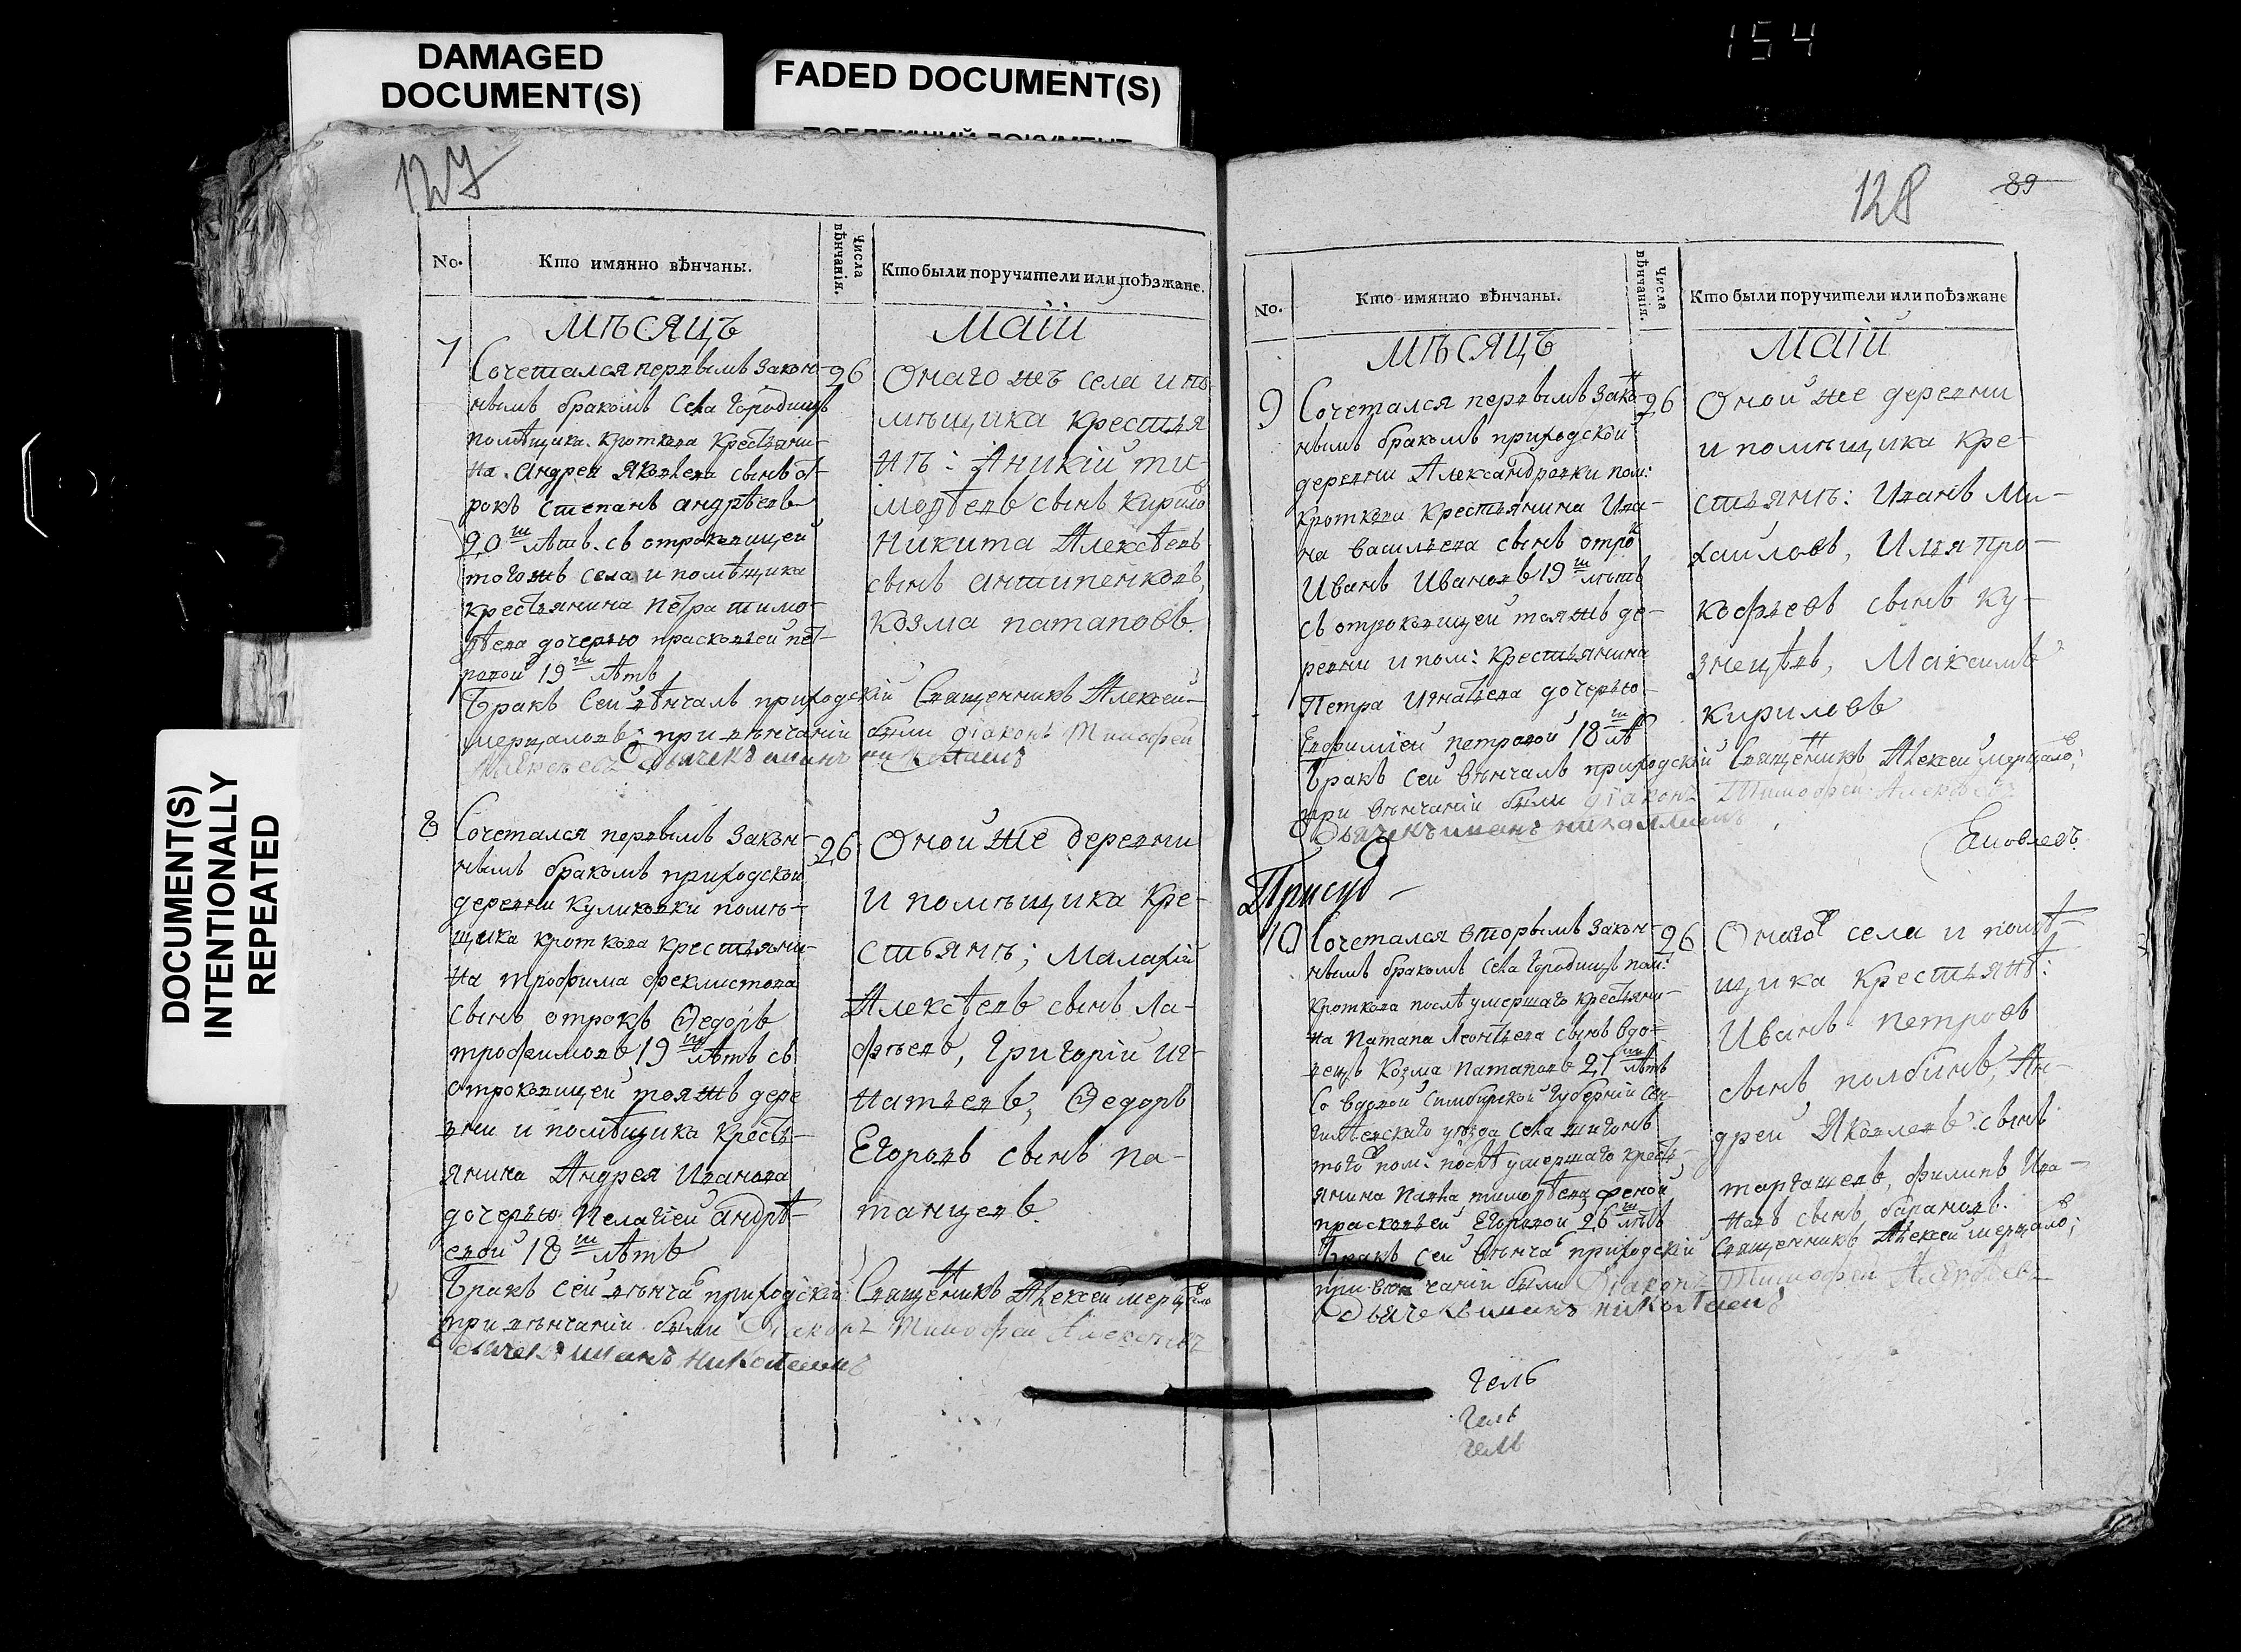 154
DAMAGED
DOCUMENT(S)
FADED DOCUMENT(S)
DOCUMENT(S)
INTENTIONALLY
REPEATED
127
No.
Кто имянно вѣнчаны.
Числа
вѣнчанія.
Кто были поручители или поѣзжане.
мѣсяцъ
маій
7
Сочетался первымъ закон-
нымъ бракомъ Села Городищъ
помѣщика Кроткова крестьяни-
на Андрея Яковлева сынъ от-
рокъ Степанъ андрѣевъ
20 ти лѣтъ. съ отроковицей
тогожъ села и помѣщика
крестьянина Петра тимо-
ѳѣева дочерью прасковьей пет-
ровой 19 ти лѣтъ
26
Онаго жъ села и по-
мѣщика крестья
нѣ: Аникій ти-
моѳѣевъ сынъ
Никита Алексѣевъ
сынъ антипенковъ,
козма патаповъ.
Бракъ Сей вѣнчалъ приходскій Священникъ Алексей
мерцаловъ; при вѣнчаній были діаконъ Тимофей
Алексѣевъ Дьячекъ иванъ николаевъ
8
Сочетался первымъ закон-
нымъ бракомъ приходской
деревни куликовки помѣ-
щика кроткова крестьяни-
на трофима феклистова
сынъ отрокъ Ѳедоръ
трофимовъ 19 ти лѣтъ съ
отроковицей тояжъ дере
вни и помѣщика Кресть-
янина Андрея Иванова
дочерью Пелагіей андрѣ-
евой 18 ти лѣтъ
26
Оной же деревни
и помѣщика кре-
стьянѣ; Малафій
Алексѣевъ сынъ Ла-
фѣевъ, Григорій иг-
натьевъ, Ѳедоръ
Егоровъ сынъ па-
танцевъ.
Бракъ Сей вѣнча приходскій Священникъ Алексей мерцало
при вѣнчаній были Діаконъ Тимофей Алексѣевъ
дьячекъ иванъ николаевъ
128
89
No.
Кто имянно вѣнчаны.
Числа
вѣнчанія.
Кто были поручители или поѣзжане
мѣсяцъ
маій
9
Сочетался первымъ зако-
ннымъ бракомъ приходской
деревни Александровки пом:
Кроткова крестьянина Ива-
на Васильева сынъ отро
Иванъ Ивановъ 19 ти лѣтъ
съ отроковицей тояжъ де-
ревни и пом: крестьянина
Петра Игнатьева дочерью
Евфиміей петровой 18 ти лѣ
26
Оной же деревни
и помѣщика кре-
стьянъ: Иванъ Ми-
хаиловъ, Илья про-
кофьевъ сынъ ку-
знецовъ, Максимъ
кириловъ
Бракъ сей вѣнчалъ приходскій Священникъ Алексей мерцало;
при вѣнчаніи были діаконъ Тимофей Алексѣевъ
Дьячекъ иванъ николаевъ
Присуд
10
Сочетался вторымъ закон-
нымъ бракомъ Села Городищъ пом:
Кроткова послѣ умершаго крестьяни-
на Патапа Леонтьева сынъ вдо-
вецъ Козма Патаповъ 27 ти лѣтъ
Со вдовой Симбирской Губерніи Сен-
гилѣевскаго уѣзда Села шигонъ
того пом: послѣ умершаго крест-
янина Павла тимоѳѣева женой
прасковьей Егоровой 26 ти лѣтъ
26
Онаго села и помѣ-
щика крестьянѣ:
Иванъ петровъ
сынъ полбинъ, Ан-
дрей Яковлевъ сынъ
таргашевъ, филипъ Ива-
новъ сынъ барановъ.
Бракъ сей вѣнча приходскій Священникъ Алексей мерцало;
при вѣнчаніи были Діаконъ Тимофей Алексѣевъ
Дьячекъ иванъ николаевъ